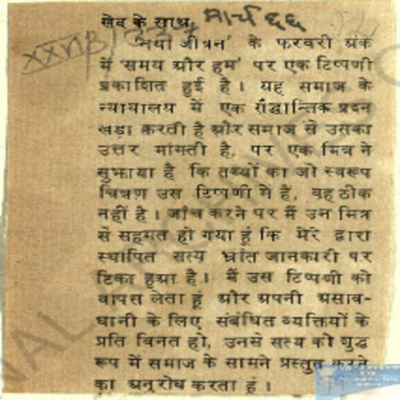 खेद के साथ,
मार्च ६६
XXVIB/333
'नया जीवन' के फरवरी अंक
में 'समय और हम' पर एक टिप्पणी
प्रकाशित हुई है। यह समाज के
न्यायालय में एक सैद्धान्तिक प्रश्न
खड़ा करती है और समाज से उसका
उत्तर मांगती है, पर एक मित्र ने
सुझाया है कि तथ्यों का जो स्वरूप
चित्रण उस टिप्पणी में है, वह ठीक
नहीं है। जाँच करने पर मैं उन मित्र
से सहमत हो गया हूं कि मेरे द्वारा
स्थापित सत्य भ्रांत जानकारी पर
टिका हुआ है। मैं उस टिप्पणी को
वापस लेता हूं और अपनी असाव-
धानी के लिए संबंधित व्यक्तियों के
प्रति विनत हो, उनसे सत्य को शुद्ध
रूप में समाज के सामने प्रस्तुत करने
का अनुरोध करता हूं।